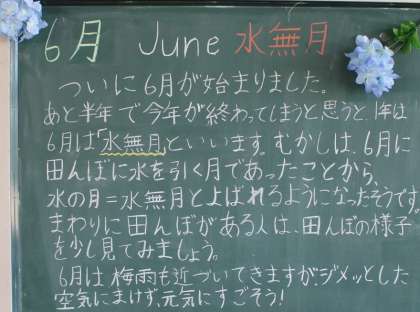 6月 June 水無月
ついに6月が始まりました。
あと半年で今年が終わってしまうと思うと、1年は
6月は「水無月」といいます。むかしは、6月に
田んぼに水を引く月であったことから、
水の月=水無月とよばれるようになったそうです。
まわりに田んぼがある人は、田んぼの様子
を少し見てみましょう。
6月は梅雨も近づいてきますが、ジメッとした
空気にまけず、元気にすごそう!